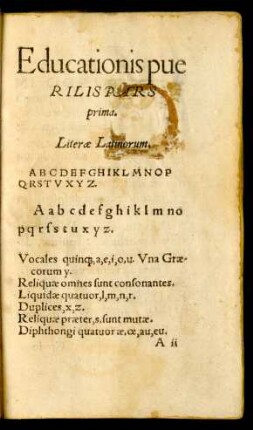 Educationis pue
RILIS PARS
prima.
Literæ Latinorum.
A B C D E F G H I K L M N O P
Q R S T V X Y Z.
A a b c d e f g h i k l m n o
p q r ſ s t u x y z.
Vocales quinq;, a, e, i, o, u. Vna Græ-
corum y.
Reliquæ omnes ſunt conſonantes.
Liquidæ quatuor, l, m, n, r.
Duplices, x, z.
Reliquæ præter, s. ſunt mutæ.
Diphthongi quatuor æ, œ, au, eu.
A ii